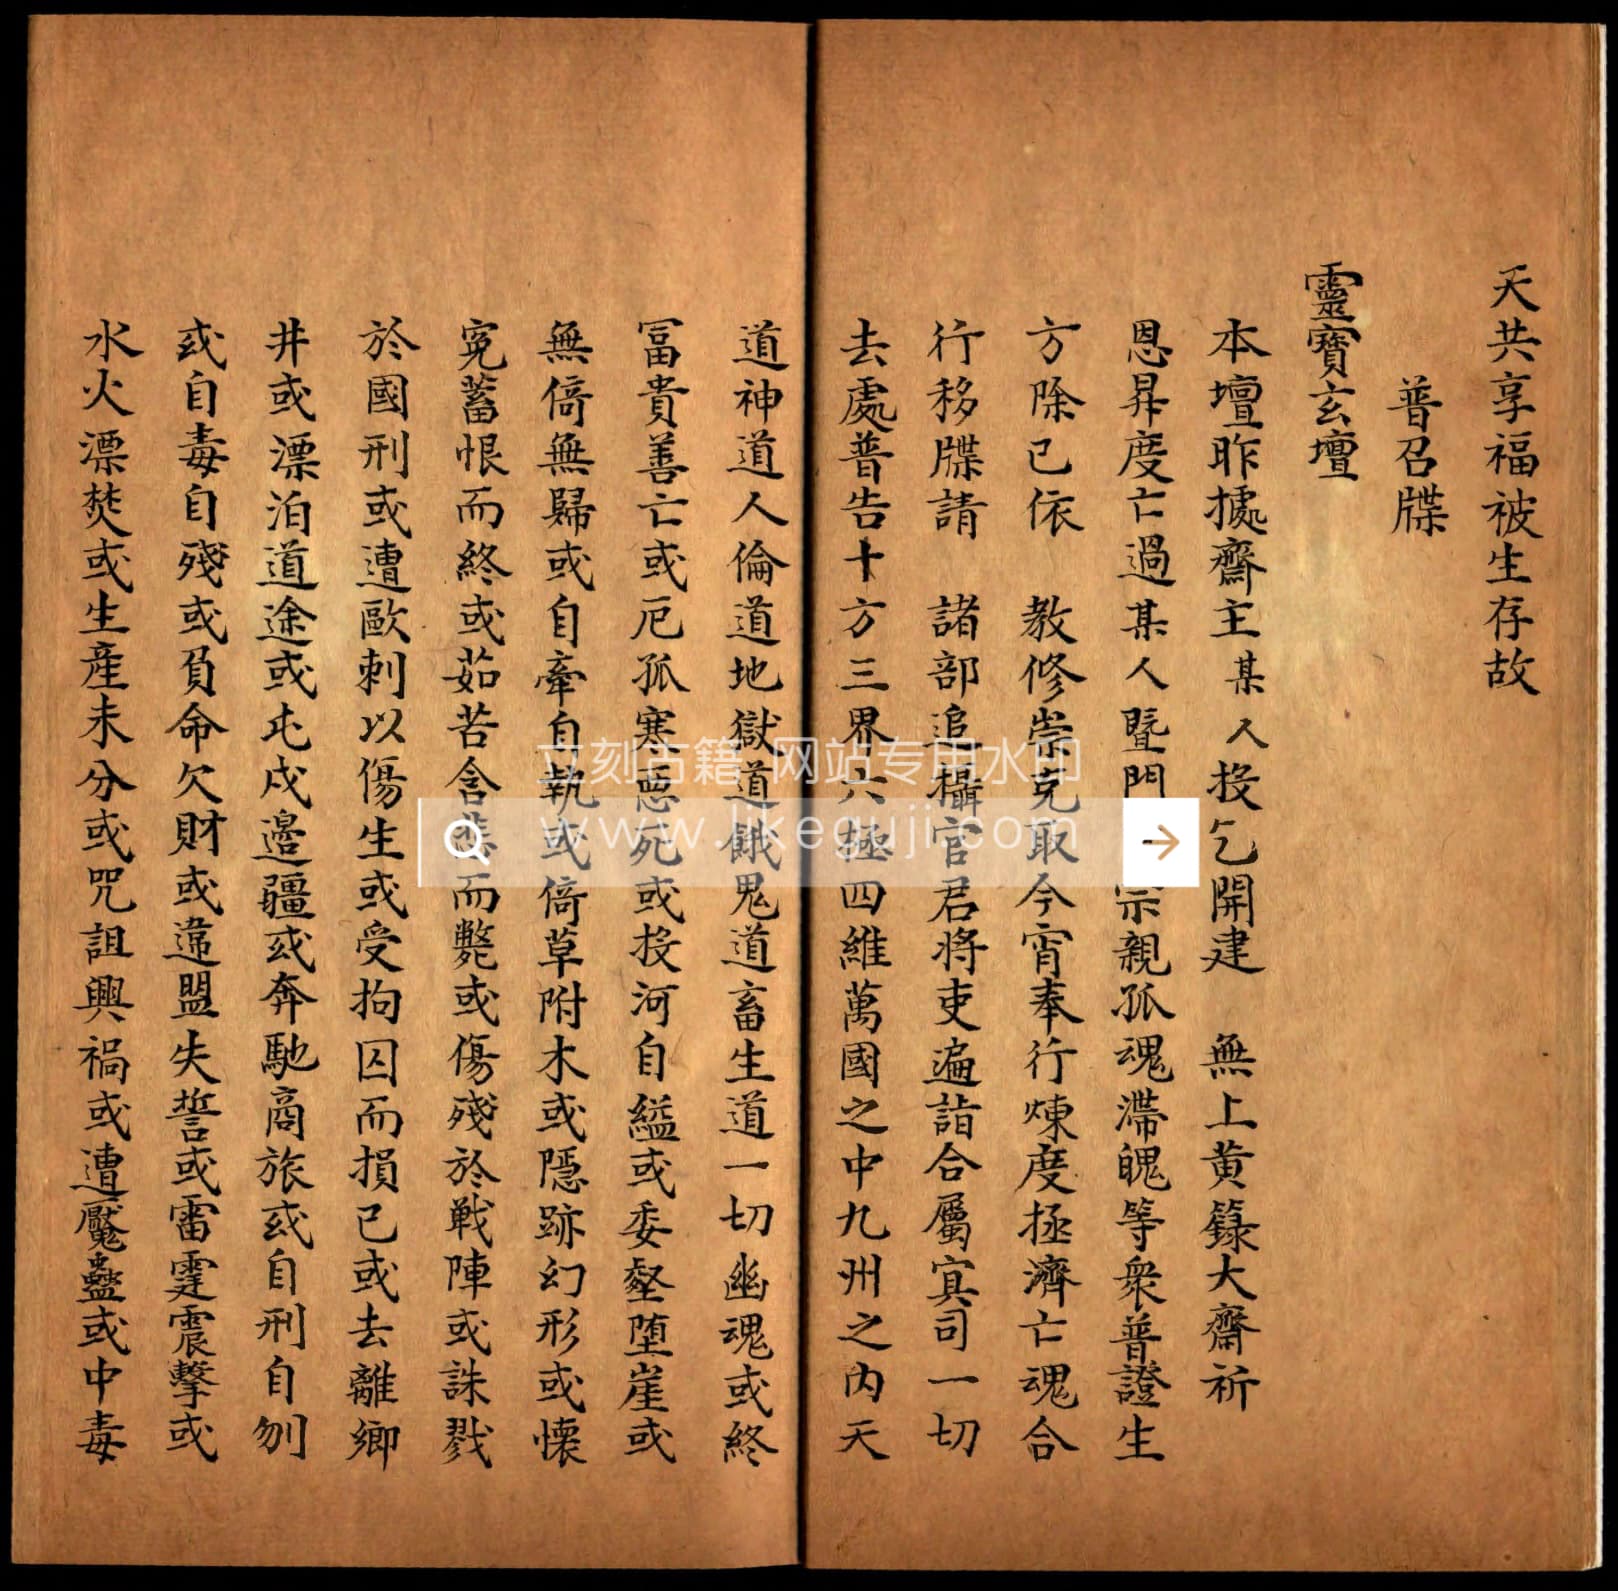 天共享福被生存故
普召牒
靈寶玄壇
本壇昨據齋主某人投乞開建　無上黃籙大齋祈
恩昇度亡過某人暨門宗親孤魂滯魄等衆普證生
方除已依　教修崇克取今宵奉行煉度拯濟亡魂合
行移牒請　諸部追攝官君將吏遍詣合屬冥司一切
去處普告十方三界六極四維萬國之中九州之内天
道神道人倫道地獄道餓鬼道畜生道一切幽魂或終
冨貴善亡或厄孤寒惡死或投河自縊或委壑堕崖或
無倚無歸或自牽自執或倚草附木或隱跡幻形或懷
寃蓄恨而終或茹苦含悲而斃或傷殘於戦陣或誅戮
於國刑或遭歐刺以傷生或受拘囚而損己或去離鄉
井或漂泊道途或屯戍邉疆或奔馳商旅或自刑自刎
或自毒自殘或負命欠財或違盟失誓或雷霆震擊或
水火漂焚或生産未分或咒詛興禍或遭魘蠱或中毒
立刻古籍 网站专用水印
www.likeguji.com